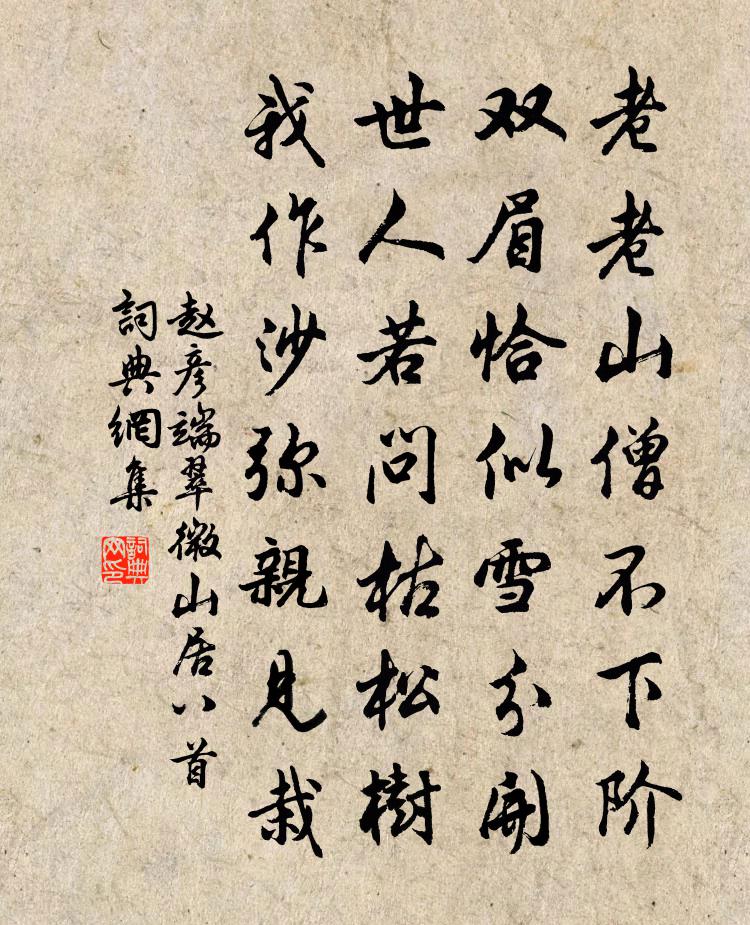 老老山僧不下阶
双眉恰似雪分开
世人若问枯松樹
我作沙弥親見栽
赵彦端翠微山居八首
詞典網集
詞典
网印